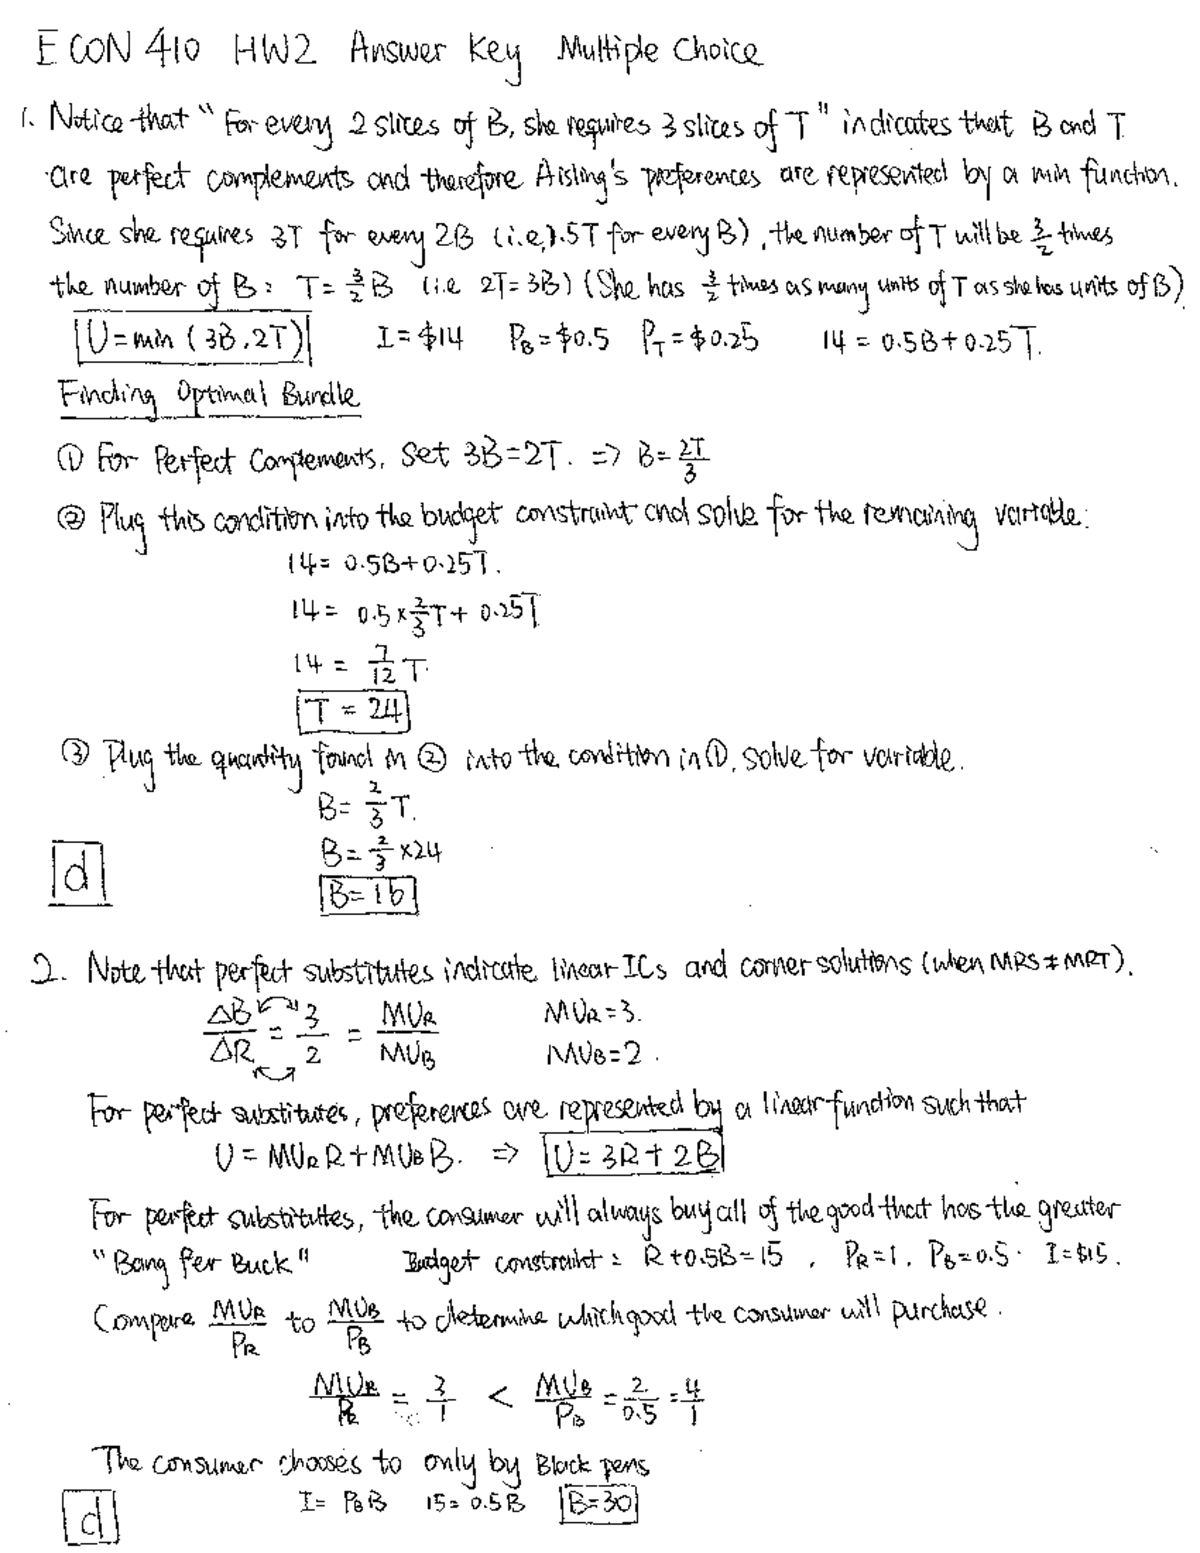 ECON 410 HW2 Answer Key Multiple Choice
1. Notice that "For every 2 slices of B, she requires 3 slices of T" indicates that B and T
are perfect complements and therefore Aisling's preferences are represented by a min function.
Since she requires 3T for every 2B (i.e, 1.5T for every B), the number of T will be 3/2 times
the number of B: T = 3/2 B (i.e 2T=3B) (She has 3/2 times as many units of T as she has units of B)
U = min (3B, 2T) I = $14 P_B = $0.5 P_T = $0.25 14 = 0.5B + 0.25T.
Finding Optimal Bundle
① For Perfect Complements, Set 3B=2T. => B = 2T/3
② Plug this condition into the budget constraint and solve for the remaining variable:
14 = 0.5B + 0.25T.
14 = 0.5 × 2/3 T + 0.25T
14 = 7/12 T.
T = 24
③ Plug the quantity found in ② into the condition in ①, solve for variable.
B = 2/3 T.
B = 2/3 × 24
d B = 16
2. Note that perfect substitutes indicate linear ICs and corner solutions (when MRS ≠ MRT).
ΔB/ΔR = 3/2 = MU_R/MU_B MU_R = 3.
MU_B = 2.
For perfect substitutes, preferences are represented by a linear function such that
U = MU_R R + MU_B B. => U = 3R + 2B
For perfect substitutes, the consumer will always buy all of the good that has the greater
"Bang Per Buck" Budget constraint: R + 0.5B = 15, P_R = 1, P_B = 0.5. I = $15.
Compare MU_R/P_R to MU_B/P_B to determine which good the consumer will purchase.
MU_R/P_R = 3/1 < MU_B/P_B = 2/0.5 = 4/1
The consumer chooses to only by Black pens
d I = P_B B 15 = 0.5B B = 30